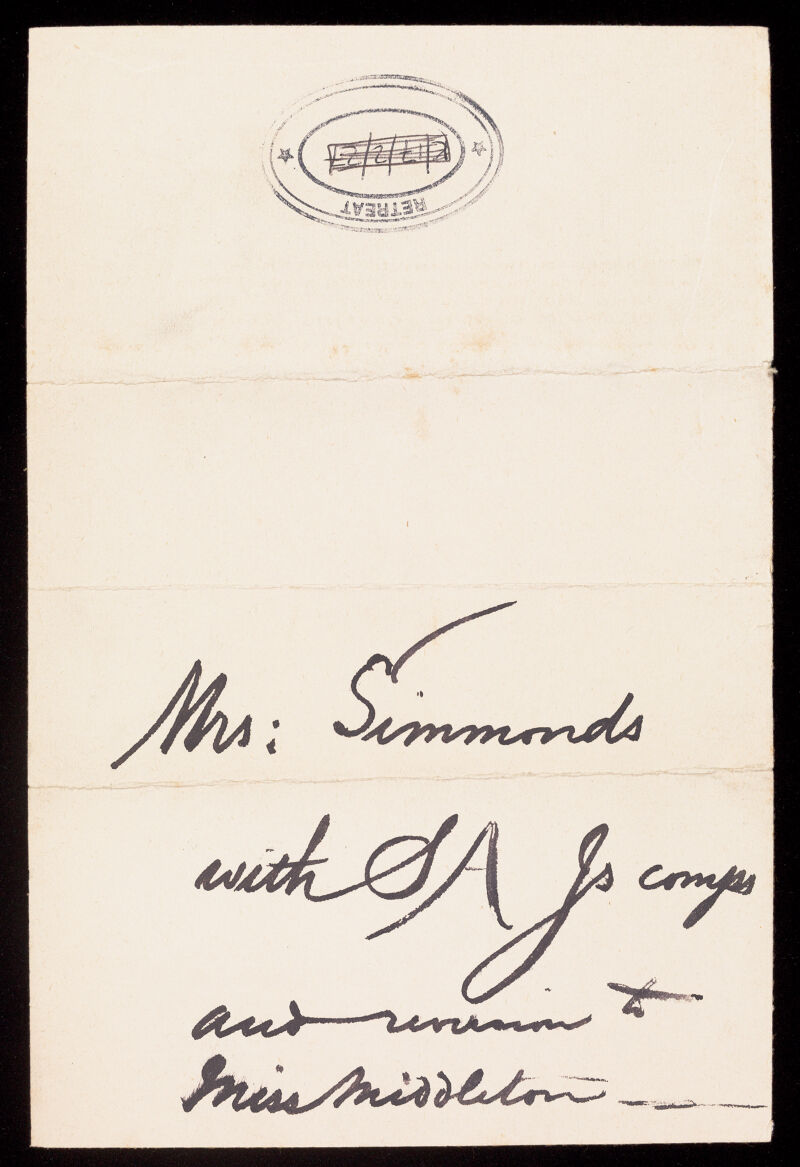 RETREAT
Mrs: Simmonds
with SA Js comps
and reversion to
Miss Middleton